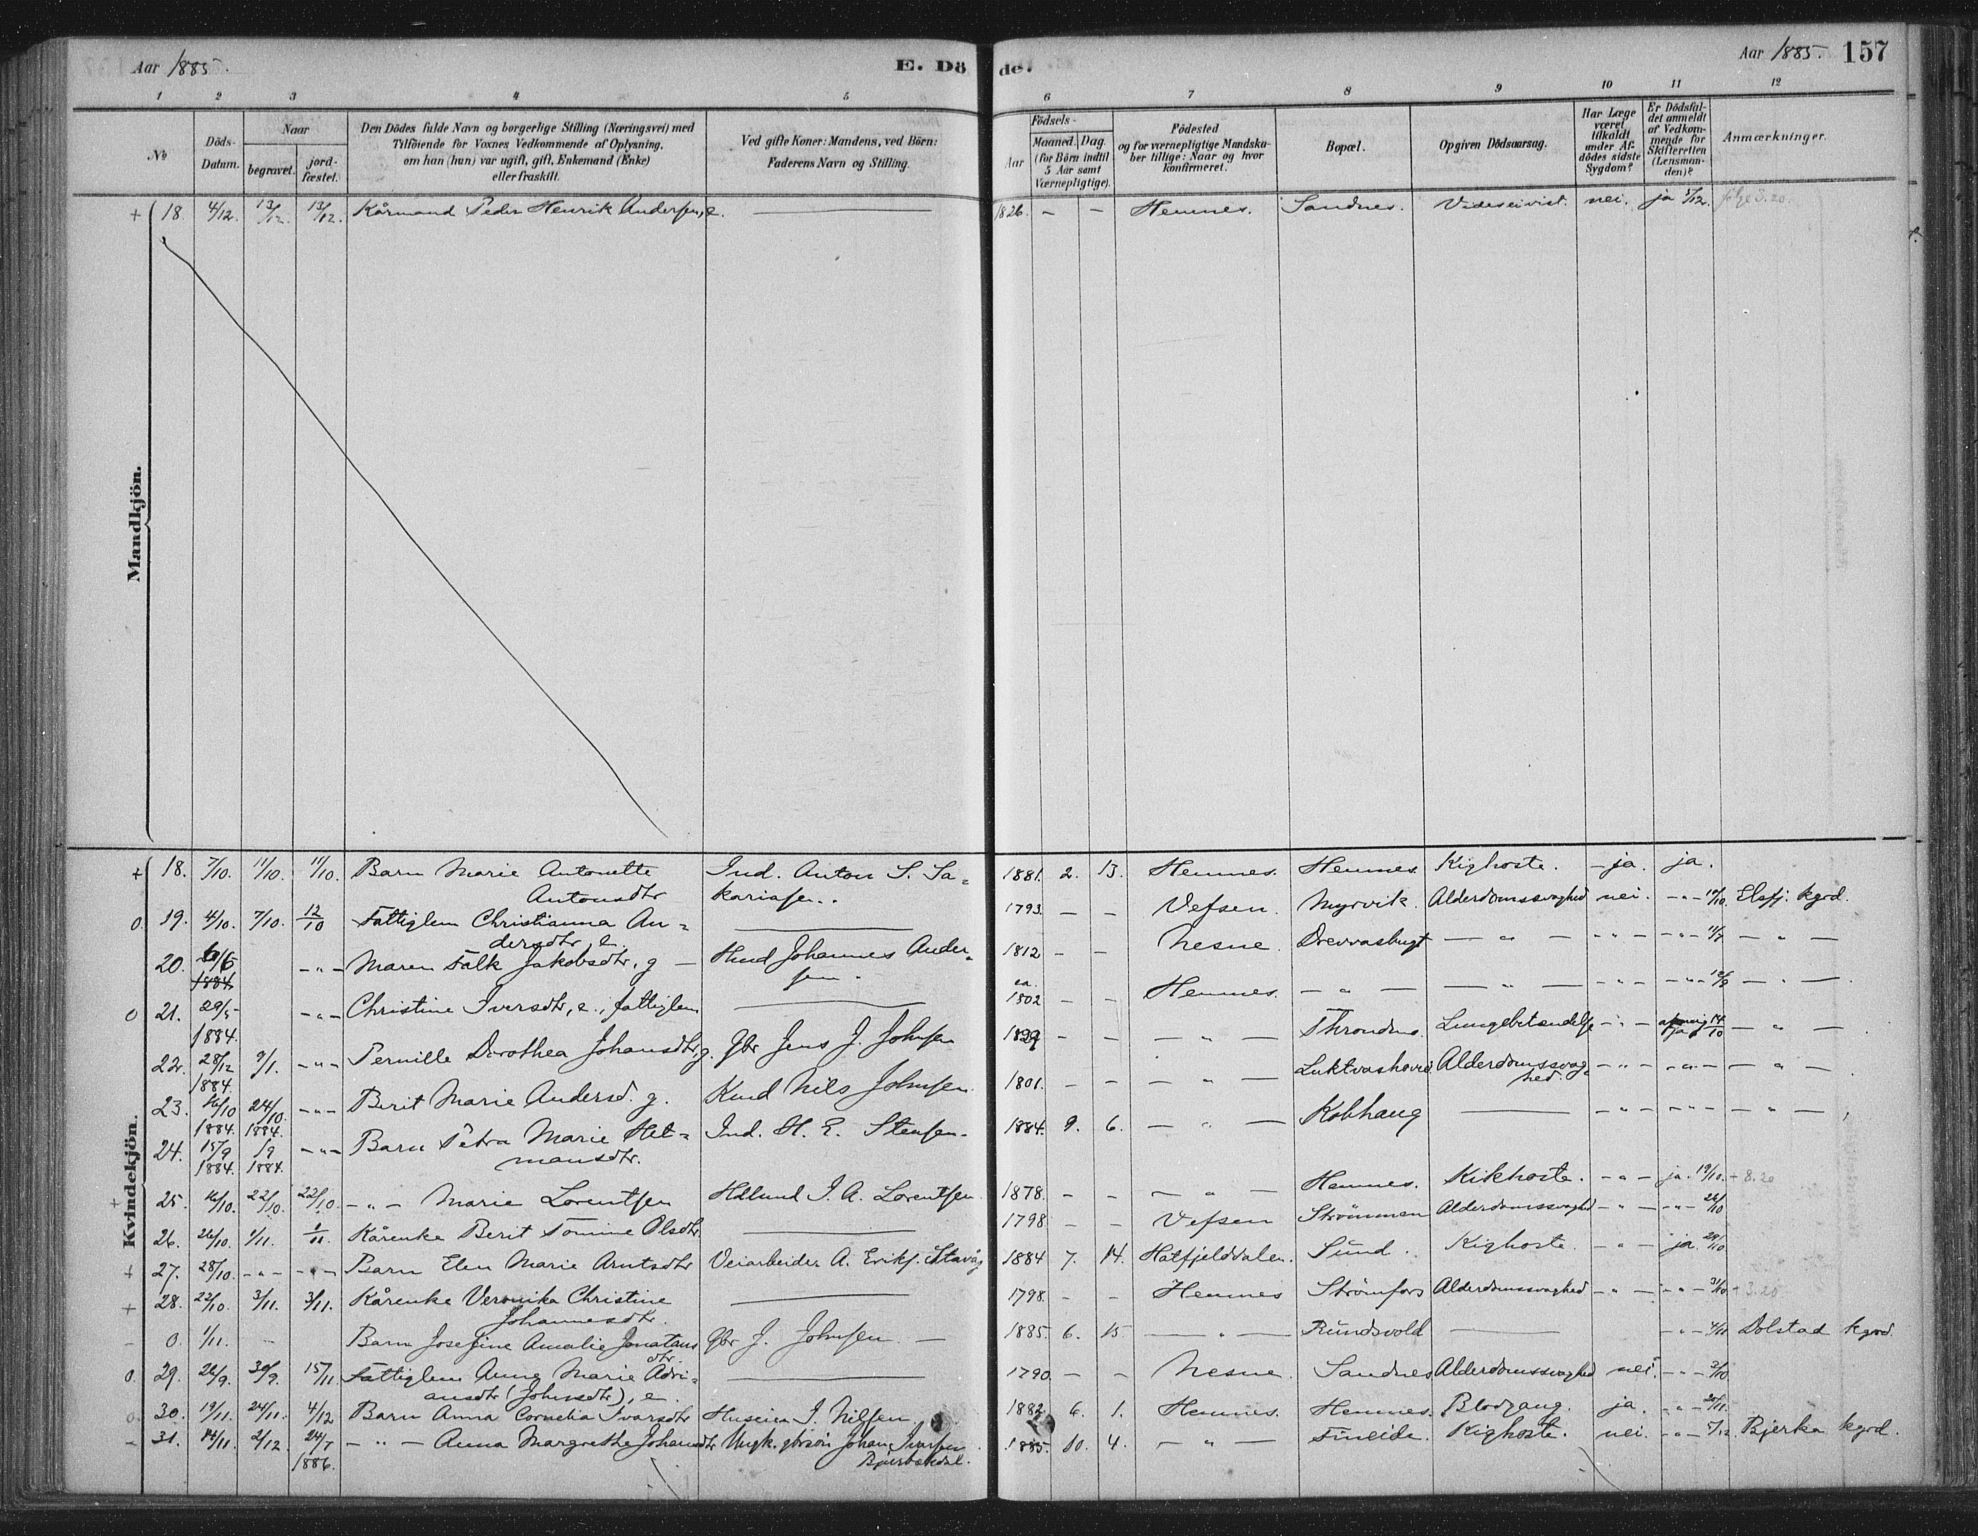 Aar 1885. E. Döde. Aar 1885. 157
1 2 3 4 5 6 7 8 9 10 11 12
No
Döds-Datum.
Naar
begravet.
jord-fæstet.
Den Dödes fulde Navn og borgerlige Stilling (Næringsvei) med
Tilföiende for Voxnes Vedkommende af Oplysning,
om han (hun) var ugift, gift, Enkemand (Enke)
eller fraskilt.
Ved gifte Koner: Mandens, ved Börn:
Faderens Navn og Stilling.
Födsels-
Aar
Maaned. Dag.
(for Börn indtil
5 Aar samt
Værnepligtige).
Födested
og for værnepligtige Mandska-
ber tillige: Naar og hvor
konfirmeret.
Bopæl.
Opgiven Dödsaarsag.
Har Læge
været
tilkaldt
under Af-
dödes sidste
Sygdom?
Er Dödsfal-
det anmeldt
af Vedkom-
mende for
Skifteretten
(Lensman-
den)?
Anmærkninger.
Mandkjön.
+ 18. 4/12. 13/12. 13/12. Kårmand Peder Henrik Andersen, e. — 1826. — — Hemnes. Sandnes. nei. ja 5/12.
Kvindekjön.
+ 18. 7/10. 11/10. 11/10. Barn Marie Antonette Ind. Anton S. Sa= 1881. 2. 13. Hemnes. Hemnes. Kighoste. — ja. ja.
Antonsdtr kariasen.
0. 19. 4/10. 7/10. 12/10 Fattiglem Christianna An= — 1793. — — Vefsen. Myrvik. Alderdomssvaghed nei. — " — 10/10. Elsfj. kgrd.
dersdtr, e.
20. 1884 — " — Maren Falk Jakobsdtr, g — Hmd Johannes Ander= 1812 — — Nesne. Drevvasbugt — " — — " — — " — — " —
sen.
0 21. 29/5 1884. — " — Christine Iversdtr, e., fattiglem — ca. 1802 — — Hemnes. — " — — " — — " — — " — — " —
22. 28/12 1884. 9/1. — " — Pernille Dorothea Johansdtr, g. Gbr Jens J. Johnsen — — — " — Throndnes Lungebetændelse — " — 14/10 — " —
23. 16/10 1884. 24/10. 1884. — " — Berit Marie Andersd. g. Kmd Nils Johnsen. 1801. — — — " — Luktvashoved. Alderdomssvag= — " — — " — — " —
hed.
24. 15/9 1884. 19 1884. — " — Barn Petra Marie Het= Ind. H. E. Stensen. 1884. 9. 6. — " — Kobhaug — — " — — " — — " —
mansdtr.
+ 25. 16/10. 22/10. 22/10. — " — Marie Lorentsen I. A. Lorentsen. 1878. — — — " — Hemnes. Kikhoste. — " — ja. 19/10. + 8.20
26. 26/10. 1/11. 1/11. Kårenke Berit Tomine Olsdtr. — 1798 — — Vefsen Strømmen Alderdomssvaghed — " — — " — 28/10
+ 27. 28/10. — " — — " — Barn Elen Marie Arntsdtr Veiarbeider A. Eriks. Stavåg 1884 7. 14. Hatfjelddalen. Sund. Kighoste. — " — ja 29/10
+ 28. 22/10. 3/11. 3/11. Kårenke Veronika Christine — 1798. — — Hemnes Strømfors Alderdomssvaghed — " — — " — 31/10 + 3.20
Johannesdtr.
— 0. 1/11. — Barn Josefine Amalie Jonatans Gbr J. Johnsen — 1885. 6. 15. — " — Rundsvold — — " — 4/11 Dolstad kgrd.
dtr.
0. 29. 26/9. 30/9. 15/11. Fattiglem Anne Marie Adri= — 1790 — — Nesne. Sandnes Alderdomssvaghed nei. — " — 2/10
ansdtr (Johnsdtr), e.
0. 30. 19/11. 24/11. 4/12 Barn Anna Cornelia Ivarsdtr Huseier I. Nilsen 6. 1. Hemnes. Hemnes. Blodgang. ja. — " —
— 31. 14/11. 2/12. 24/7 1886. — " — Anna Margrethe Johansdtr Ungk. gbrsøn Johan Ivarsen 1885. 10. 4. — " — Fineide. Kighoste. nei. — " — 5/12. Bjerka kgrd.